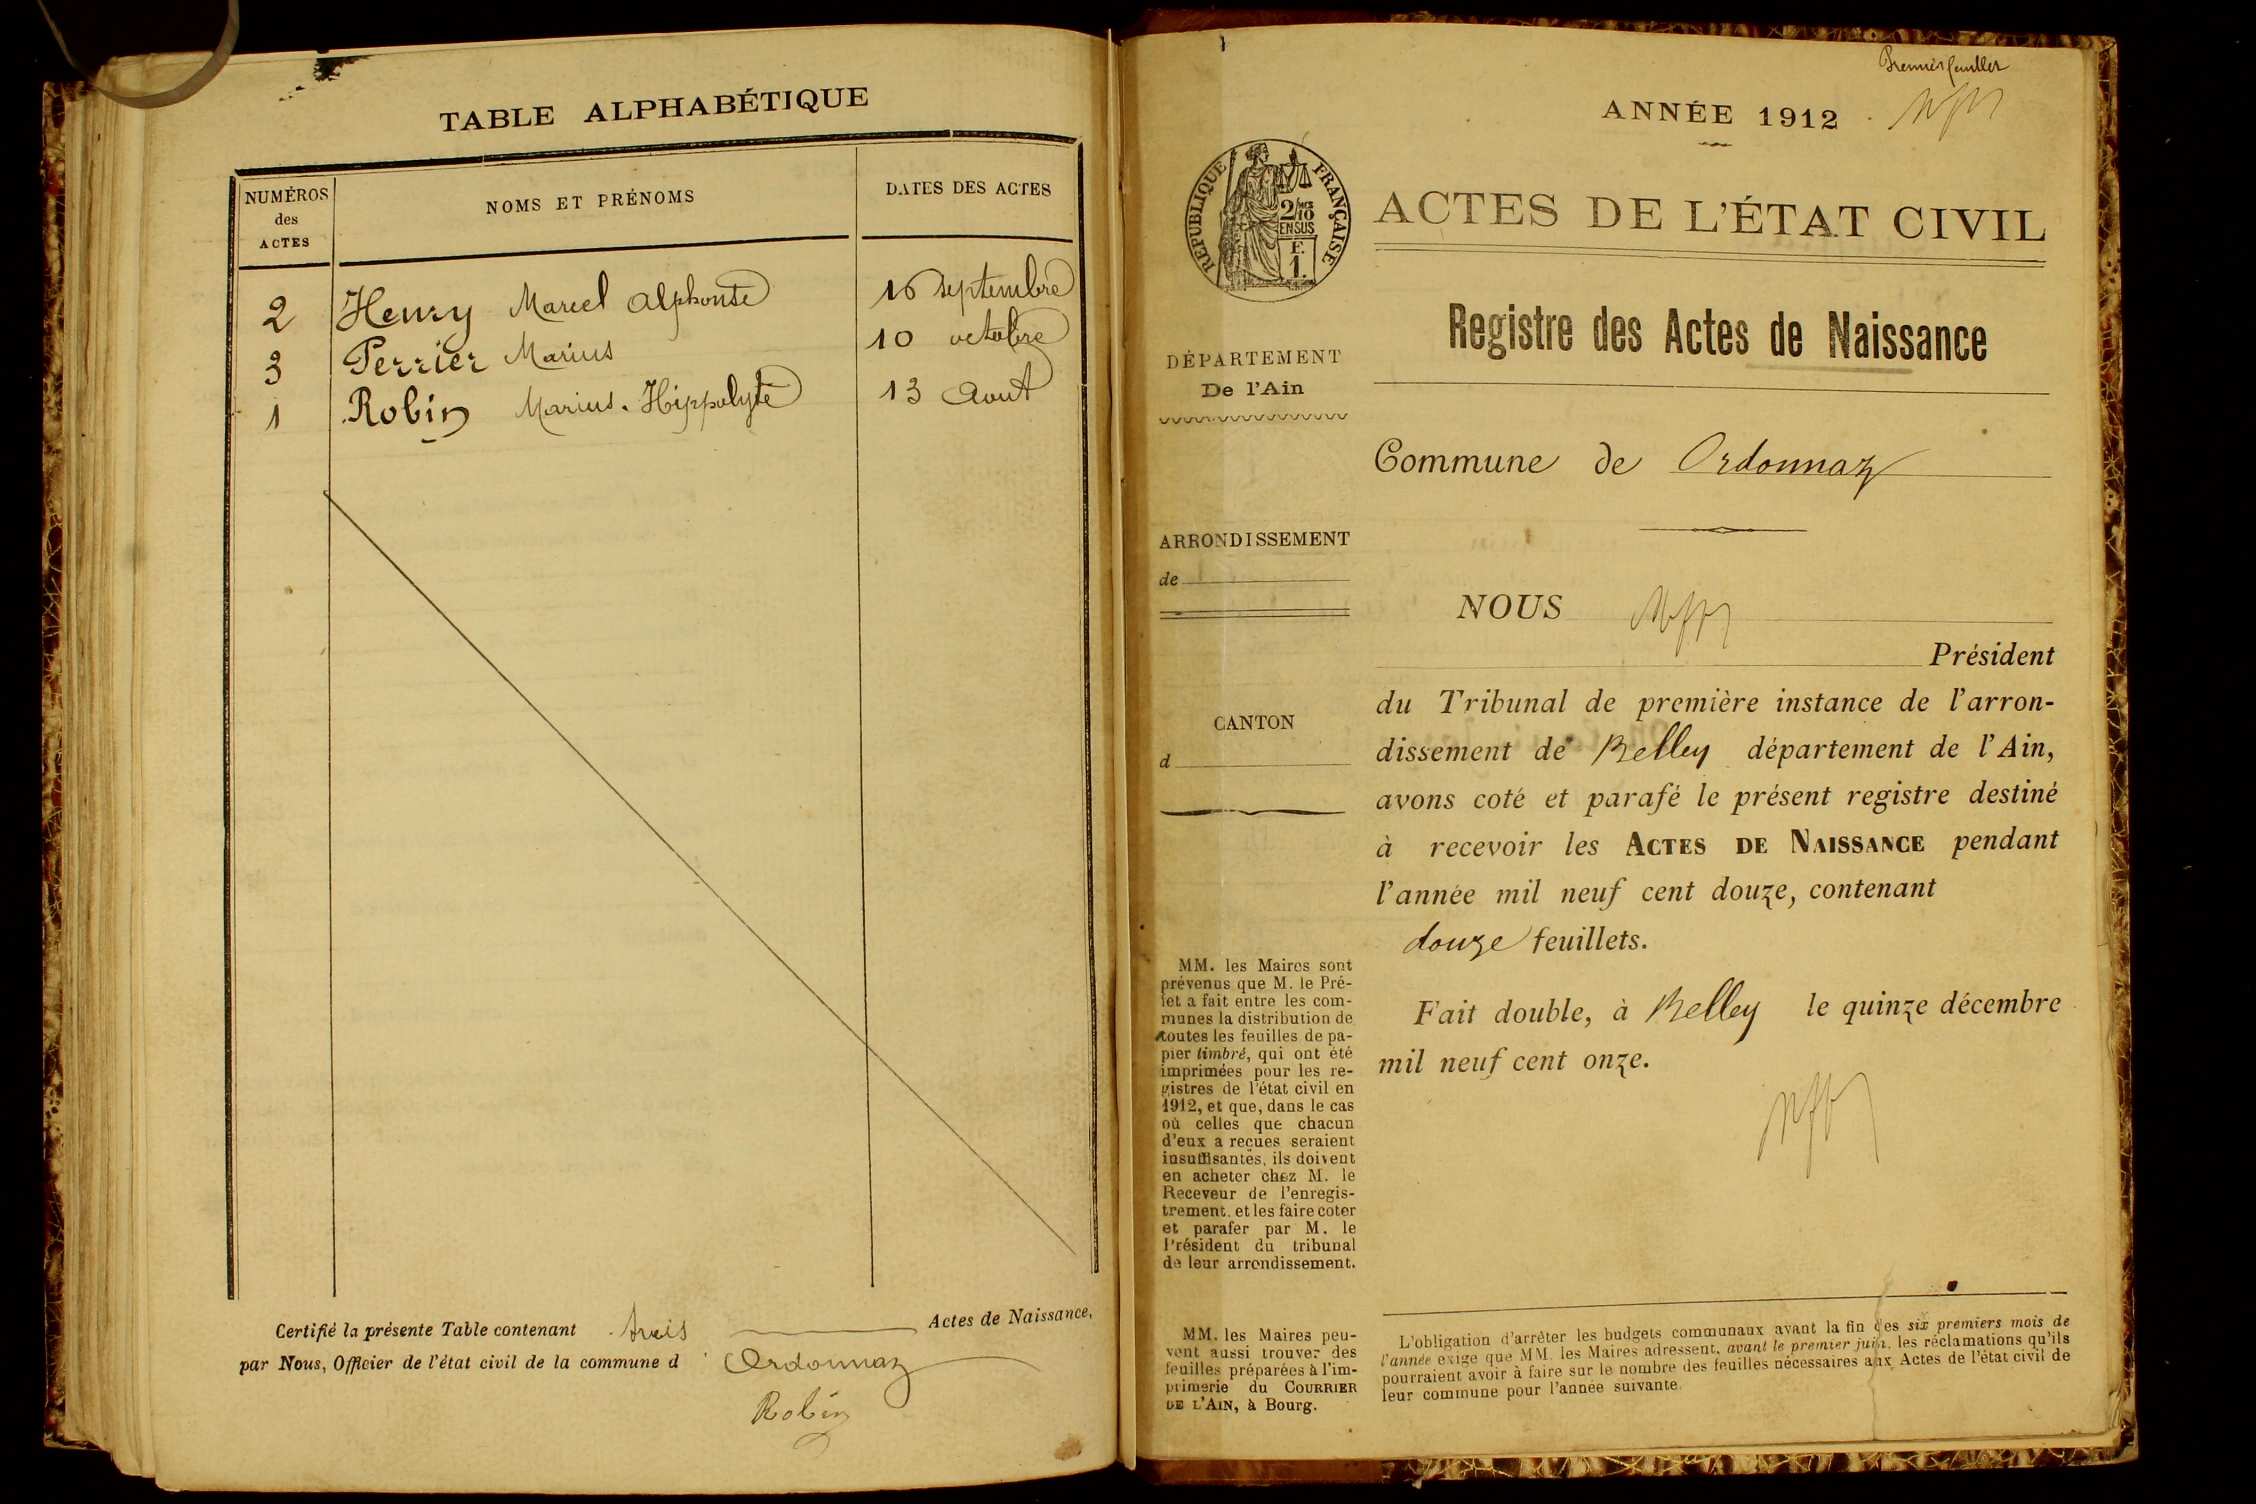 TABLE ALPHABÉTIQUE
NUMÉROS
des
ACTES
NOMS ET PRÉNOMS
DATES DES ACTES
2 Henry Marcel Alphonse 16 septembre
3 Perrier Marius 10 octobre
1 Robin Marius-Hippolyte 13 Aout
Certifié la présente Table contenant trois Actes de Naissance,
par Nous, Officier de l'état civil de la commune d Ordonnaz
Robin
Premier feuillet
ANNÉE 1912
RÉPUBLIQUE FRANÇAISE
2/10
EN SUS
F.
1.
ACTES DE L'ÉTAT CIVIL
Registre des Actes de Naissance
DÉPARTEMENT
De l'Ain
Commune de Ordonnaz
ARRONDISSEMENT
de
NOUS
Président
CANTON
d
du Tribunal de première instance de l'arron-
dissement de Belley département de l'Ain,
avons coté et parafé le présent registre destiné
à recevoir les ACTES DE NAISSANCE pendant
l'année mil neuf cent douze, contenant
douze feuillets.
Fait double, à Belley le quinze décembre
mil neuf cent onze.
MM. les Maires sont
prévenus que M. le Pré-
fet a fait entre les com-
munes la distribution de
toutes les feuilles de pa-
pier timbré, qui ont été
imprimées pour les re-
gistres de l'état civil en
1912, et que, dans le cas
où celles que chacun
d'eux a reçues seraient
insuffisantes, ils doivent
en acheter chez M. le
Receveur de l'enregis-
trement, et les faire coter
et parafer par M. le
Président du tribunal
de leur arrondissement.
MM. les Maires peu-
vent aussi trouver des
feuilles préparées à l'im-
primerie du COURRIER
DE L'AIN, à Bourg.
L'obligation d'arrêter les budgets communaux avant la fin des six premiers mois de
l'année exige que MM. les Maires adressent, avant le premier juin, les réclamations qu'ils
pourraient avoir à faire sur le nombre des feuilles nécessaires aux Actes de l'état civil de
leur commune pour l'année suivante.